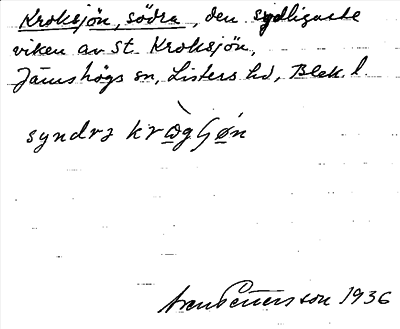 Kroksjön, södra, den sydligaste
viken av St. Kroksjön,
Jämshögs sn, Listers hd, Blek. l.
syndrə
1936